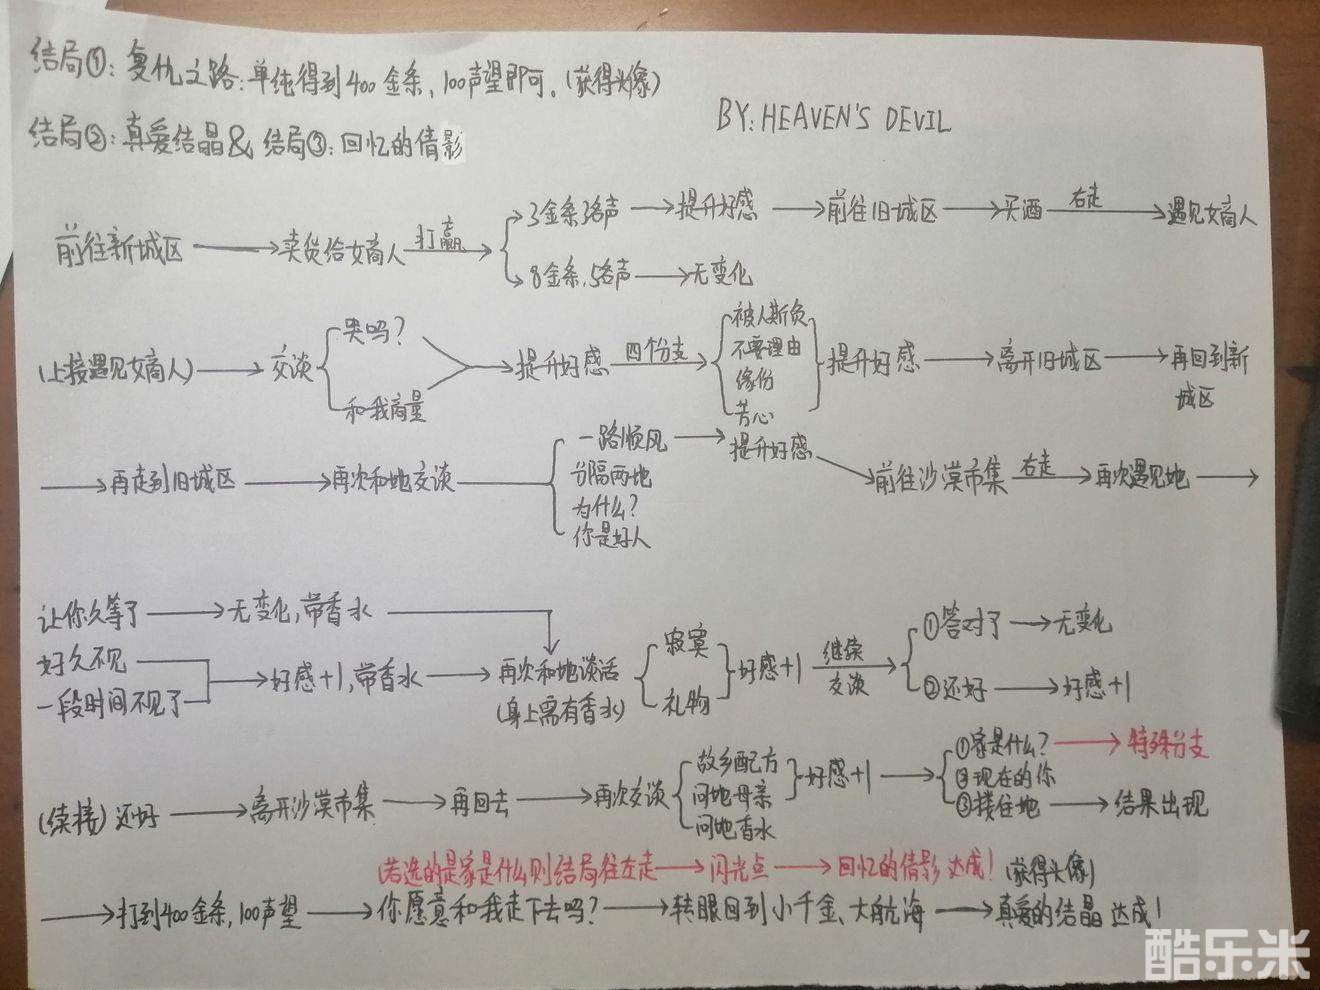 结局①：复仇之路：单纯得到400金条，100声望即可。（获得头像）
BY: HEAVEN'S DEVIL
结局②：真爱结晶 & 结局③：回忆的倩影
前往新城区 → 卖货给女商人 打赢 → 3金条3名声 → 提升好感 → 前往旧城区 → 买酒 右走 → 遇见女商人
8金条，5名声 → 无变化
（上接遇见女商人）→ 交谈 哭吗？ 和我商量 → 提升好感 四个分支 → 被人欺负 不要理由 缘份 芳心 提升好感 → 离开旧城区 → 再回到新城区
→ 再走到旧城区 → 再次和她交谈 一路顺风 → 提升好感 → 前往沙漠市集 右走 → 再次遇见她 →
分隔两地
为什么？
你是好人
让你久等了 → 无变化，带香水
好久不见
一段时间不见了 → 好感+1，带香水 → 再次和她谈话（身上需有香水） 寂寞 礼物 好感+1 继续交谈 → ①答对了 → 无变化
②还好 → 好感+1
（续接）还好 → 离开沙漠市集 → 再回去 → 再次交谈 故乡配方 问她母亲 问她香水 好感+1 → ①家是什么？ → 特殊分支
②现在的你
③搂住她 → 结果出现
（若选的是家是什么则结局往左走 → 闪光点 → 回忆的倩影 达成！（获得头像）
→ 打到400金条，100声望 → 你愿意和我走下去吗？ → 转眼回到小千金、大航海 → 真爱的结晶 达成！
酷乐米